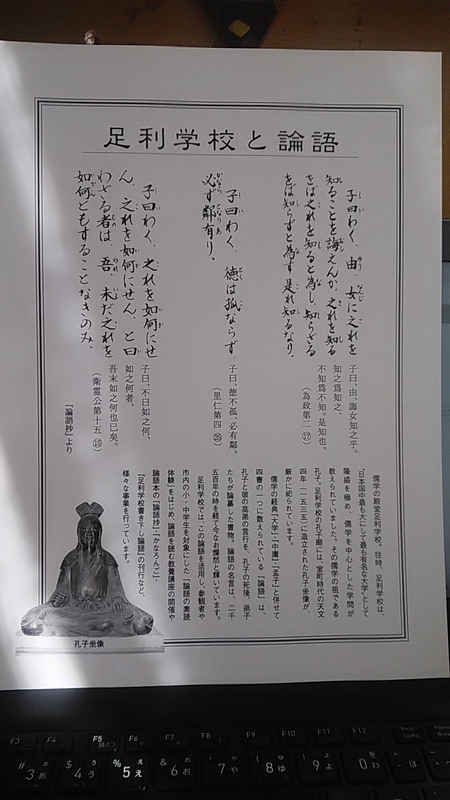 足利学校と論語
子曰わく、由、女に之れを
知ることを誨えんか、之れを知る
をば之れを知ると為し、知らざる
をば知らずと為す、是れ知るなり。
子曰、由、誨女知之乎。
知之為知之、
不知為不知。是知也。
（為政第二 ⑰）
子曰わく、徳は孤ならず、
必ず鄰有り。
子曰、徳不孤、必有鄰。
（里仁第四 ㉕）
子曰わく、之れを如何にせ
ん、之れを如何にせん、と曰
わざる者は、吾、未だ之れを
如何ともすることなきのみ。
子曰、不曰如之何、
如之何者、
吾末如之何也已矣。
（衛霊公第十五 ⑮）
『論語抄』より
儒学の殿堂足利学校。往時、足利学校は、
“日本国中最も大にして最も有名な大学”として
隆盛を極め、儒学を中心とした学問が
教えられていました。その儒学の祖である
孔子。足利学校の孔子廟には、室町時代の天文
四年（一五三五）に造立された孔子坐像が
厳かに祀られています。
儒学の経典「大学」・「中庸」・「孟子」と併せて
四書の一つに数えられている「論語」は、
孔子と彼の高弟の言行を、孔子の死後、弟子
たちが論纂した書物。論語の名言は、二千
五百年の時を経て今なお燦然と輝いています。
足利学校では、この論語を活用し、参観者や
市内の小・中学生を対象にした「論語の素読
体験」をはじめ、論語を読む教養講座の開催や
論語本の『論語抄』・『かなろんご』・
『足利学校書き下し論語』の刊行など、
様々な事業を行っています。
孔子坐像
F3 F4 F5 F6 F7 F8 F9 F10 F11 F12